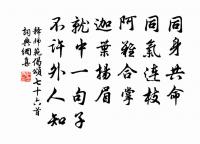 同身共命
同氣連枝
阿難合掌
迦葉揚眉
就中一句子
不許外人知
釋師範偈頌七十六首
詞典網集